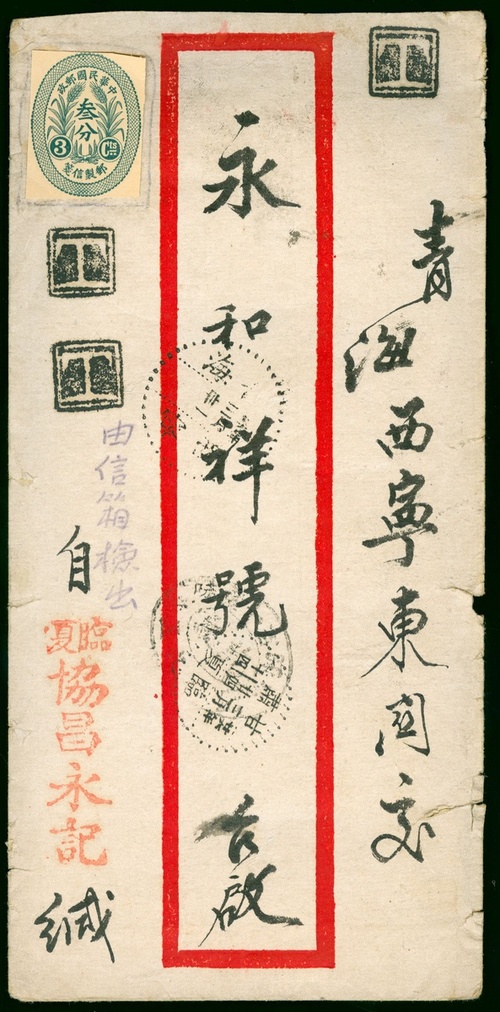 青海西寧東関交
永和祥號台啟
中華民國郵政
叁分
3 Cts
郵製信箋
T
T
T
由信箱檢出
自
臨夏
協昌永記
緘